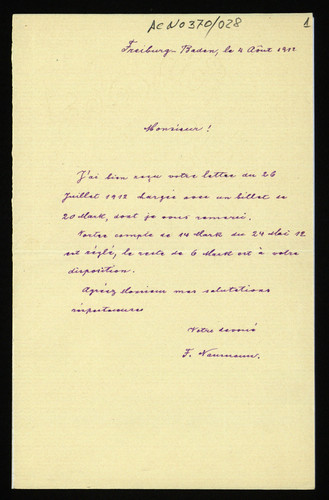 AC No 370/028
1
Freiburg-Baden, le 4 Août 1912
Monsieur!
J'ai bien reçu votre lettre du 26
Juillet 1912 chargée avec un billet de
20 Mark, dont je vous remerci.
Votre compte de 14 Mark du 24 Mai 12
est réglé, le reste de 6 Mark est à votre
disposition.
Agréez Monsieur mes salutations
Votre devoué
F. Naumann.